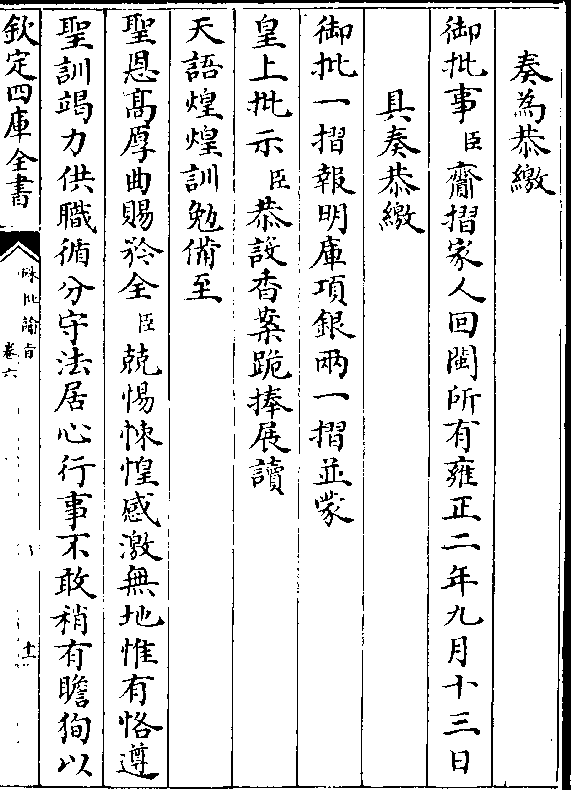 奏為恭繳
御批事臣齎摺家人回閩所有雍正二年九月十三日
具奏恭繳
御批一摺報明庫項銀兩一摺並蒙
皇上批示臣恭設香案跪捧展讀
天語煌煌訓勉備至
聖恩高厚曲賜矜全臣兢惕悚惶感激無地惟有恪遵
聖訓竭力供職循分守法居心行事不敢稍有瞻狥以
欽定四庫全書
硃批諭旨
卷六
十二